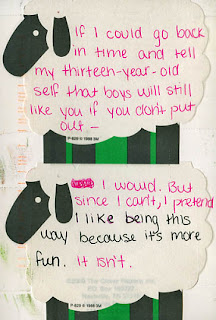 If I could go back
in time and tell
my thirteen-year-old
self that boys will still
like you if you don't put
out —
I would. But
since I can't, I pretend
I like being this
way because it's more
fun. It isn't.